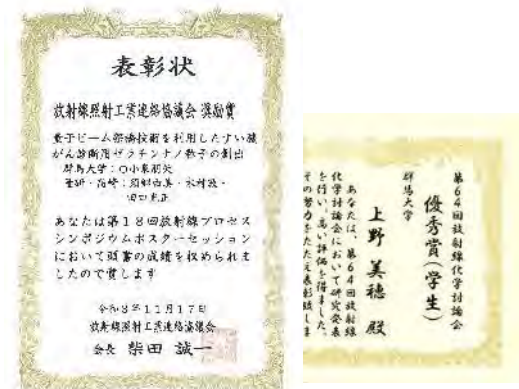 表彰状
放射線照射工業連絡協議会 奨励賞
量子ビーム架橋技術を利用したすい臓
がん診断用ゼラチンナノ粒子の創出
群馬大学:○小泉朋矢
量研・高崎:須郷由美・木村敦・
田口光正
あなたは第18回放射線プロセス
シンポジウムポスターセッション
において頭書の成績を収められま
したので賞します
令和3年11月17日
放射線照射工業連絡協議会
会長 柴田 誠一
第64回放射線化学討論会
優秀賞(学生)
群馬大学
上野 美穂 殿
あなたは、第64回放射線
化学討論会において研究発表
を行い、高い評価を得ました。
その努力をたたえ表彰致しま